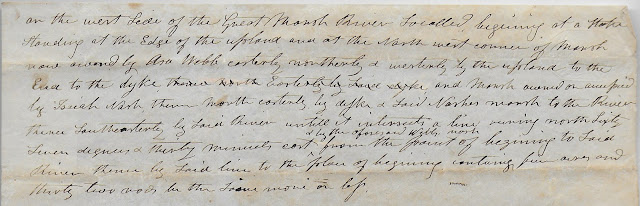 on the west side of the Great Marsh River Socalled begining at a stake
standing at the Edge of the upland and at the North west corner of Marsh
now owned by Asa Webb easterly northerly & westerly by the upland to the
End to the dyke thence North Easterly by said dyke and Marsh owned or occupied
by Isaiah Nash thence North easterly by dyke & Said Nashes marsh to the river
thence Southeasterly by Said River untill it intersects a line runing north Sixty
& by the aforesaid Webbs marsh
Seven degrees & thirty minuets east from the point of begining to Said
river thence by Said line to the place of begining containg five acres and
thirty two rods be the Same more or less